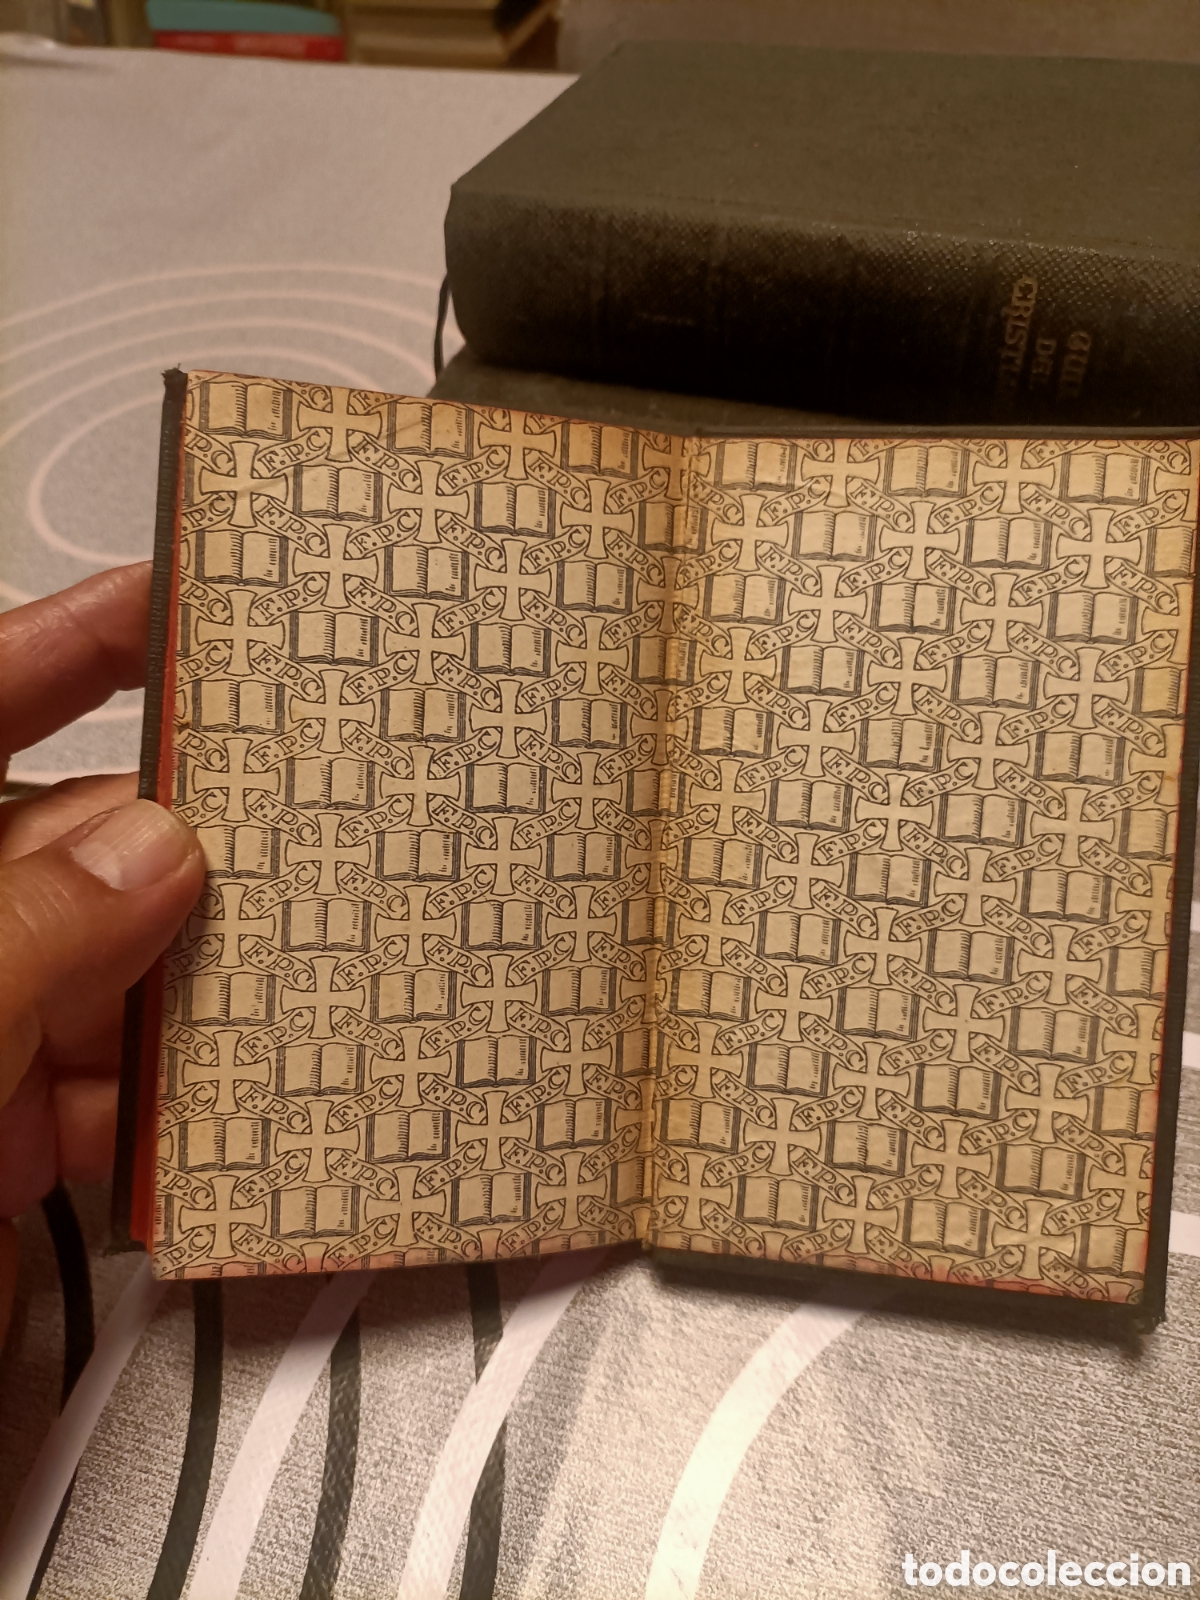 GUIA
DEL
CRISTIANO
F.P.C.
todocoleccion